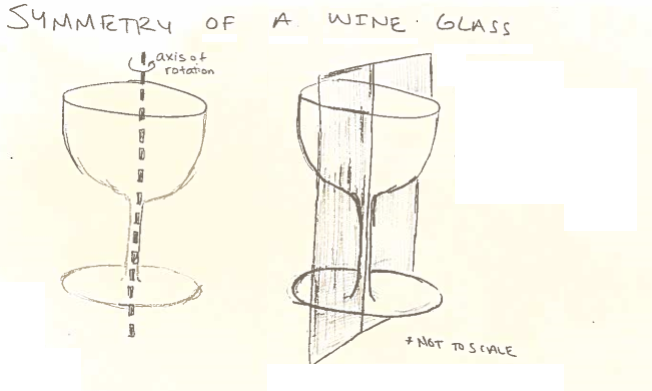 SYMMETRY OF A WINE GLASS
axis of
rotation
* NOT TO SCALE